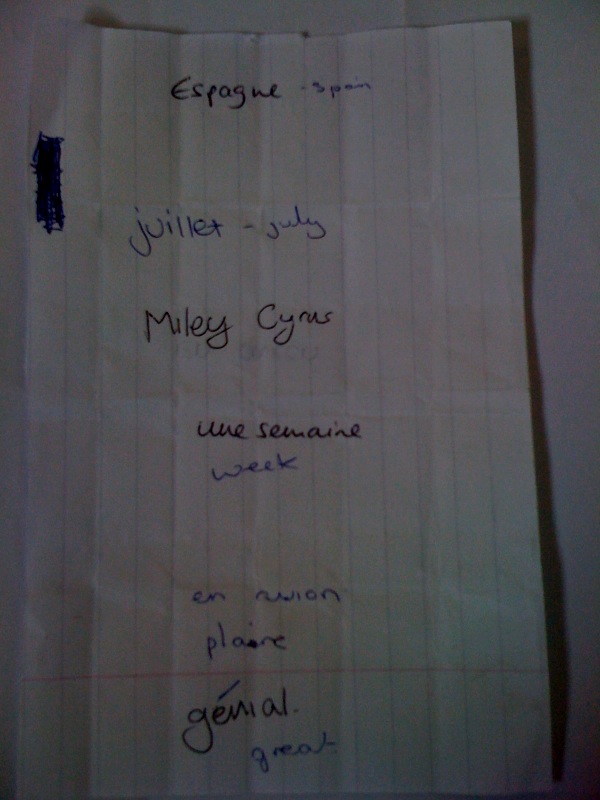 Espagne - spain
juillet - july
Miley Cyrus
une semaine
week
en avion
plaine
génial.
great